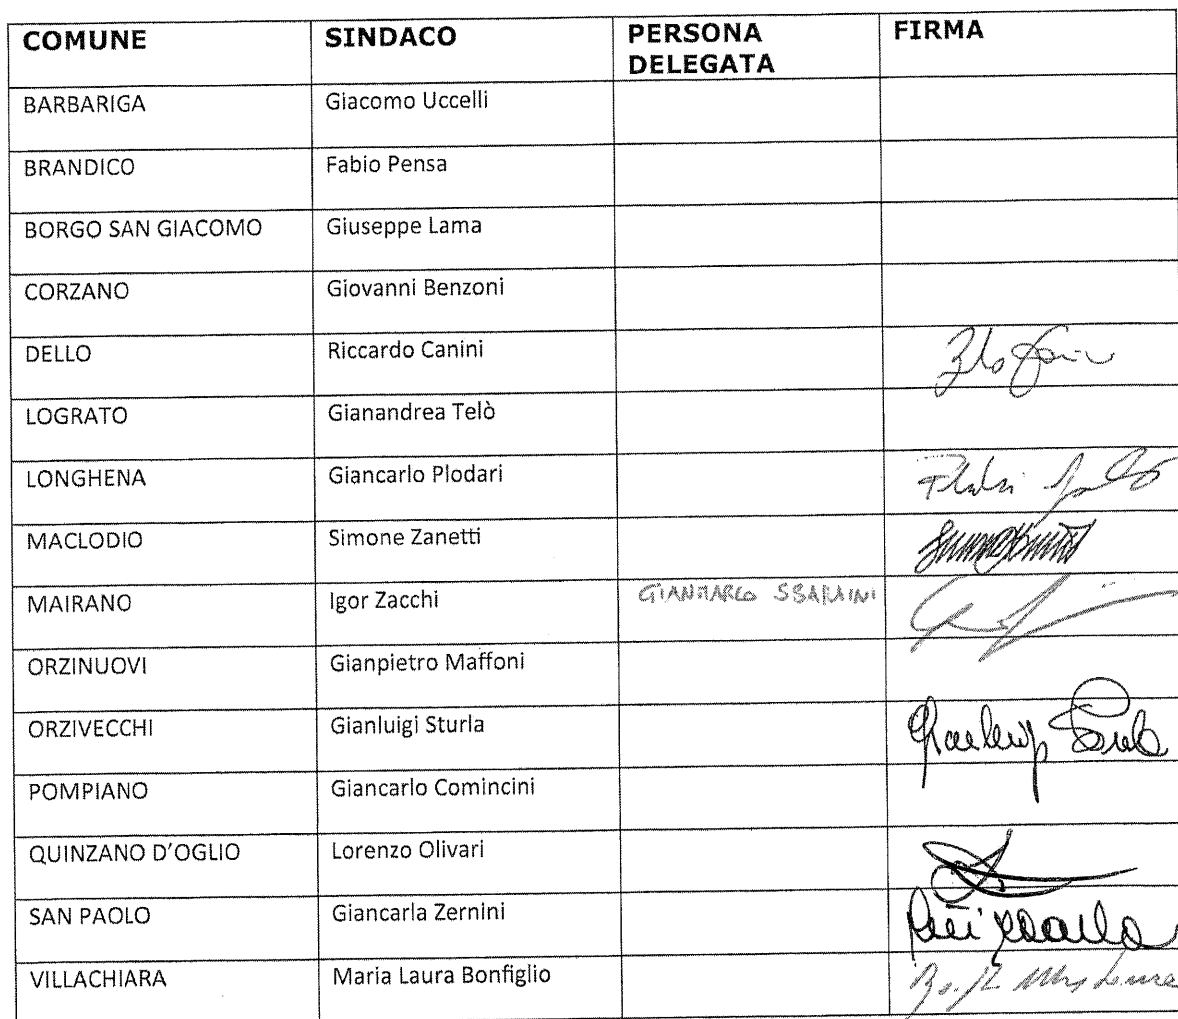 COMUNE SINDACO PERSONA DELEGATA FIRMA
BARBARIGA Giacomo Uccelli
BRANDICO Fabio Pensa
BORGO SAN GIACOMO Giuseppe Lama
CORZANO Giovanni Benzoni
DELLO Riccardo Canini
LOGRATO Gianandrea Telò
LONGHENA Giancarlo Plodari
MACLODIO Simone Zanetti
MAIRANO Igor Zacchi GIANMARCO SBARAINI
ORZINUOVI Gianpietro Maffoni
ORZIVECCHI Gianluigi Sturla
POMPIANO Giancarlo Comincini
QUINZANO D'OGLIO Lorenzo Olivari
SAN PAOLO Giancarla Zernini
VILLACHIARA Maria Laura Bonfiglio